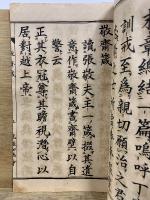 章總結一篇嗚呼
訓戒至爲親切願治之君
敬齋箴
讀張敬夫主一箴掇其遺
意作敬齋箴書齋壁以自
警云
正其衣冠尊其瞻視潛心以
居對越上帝